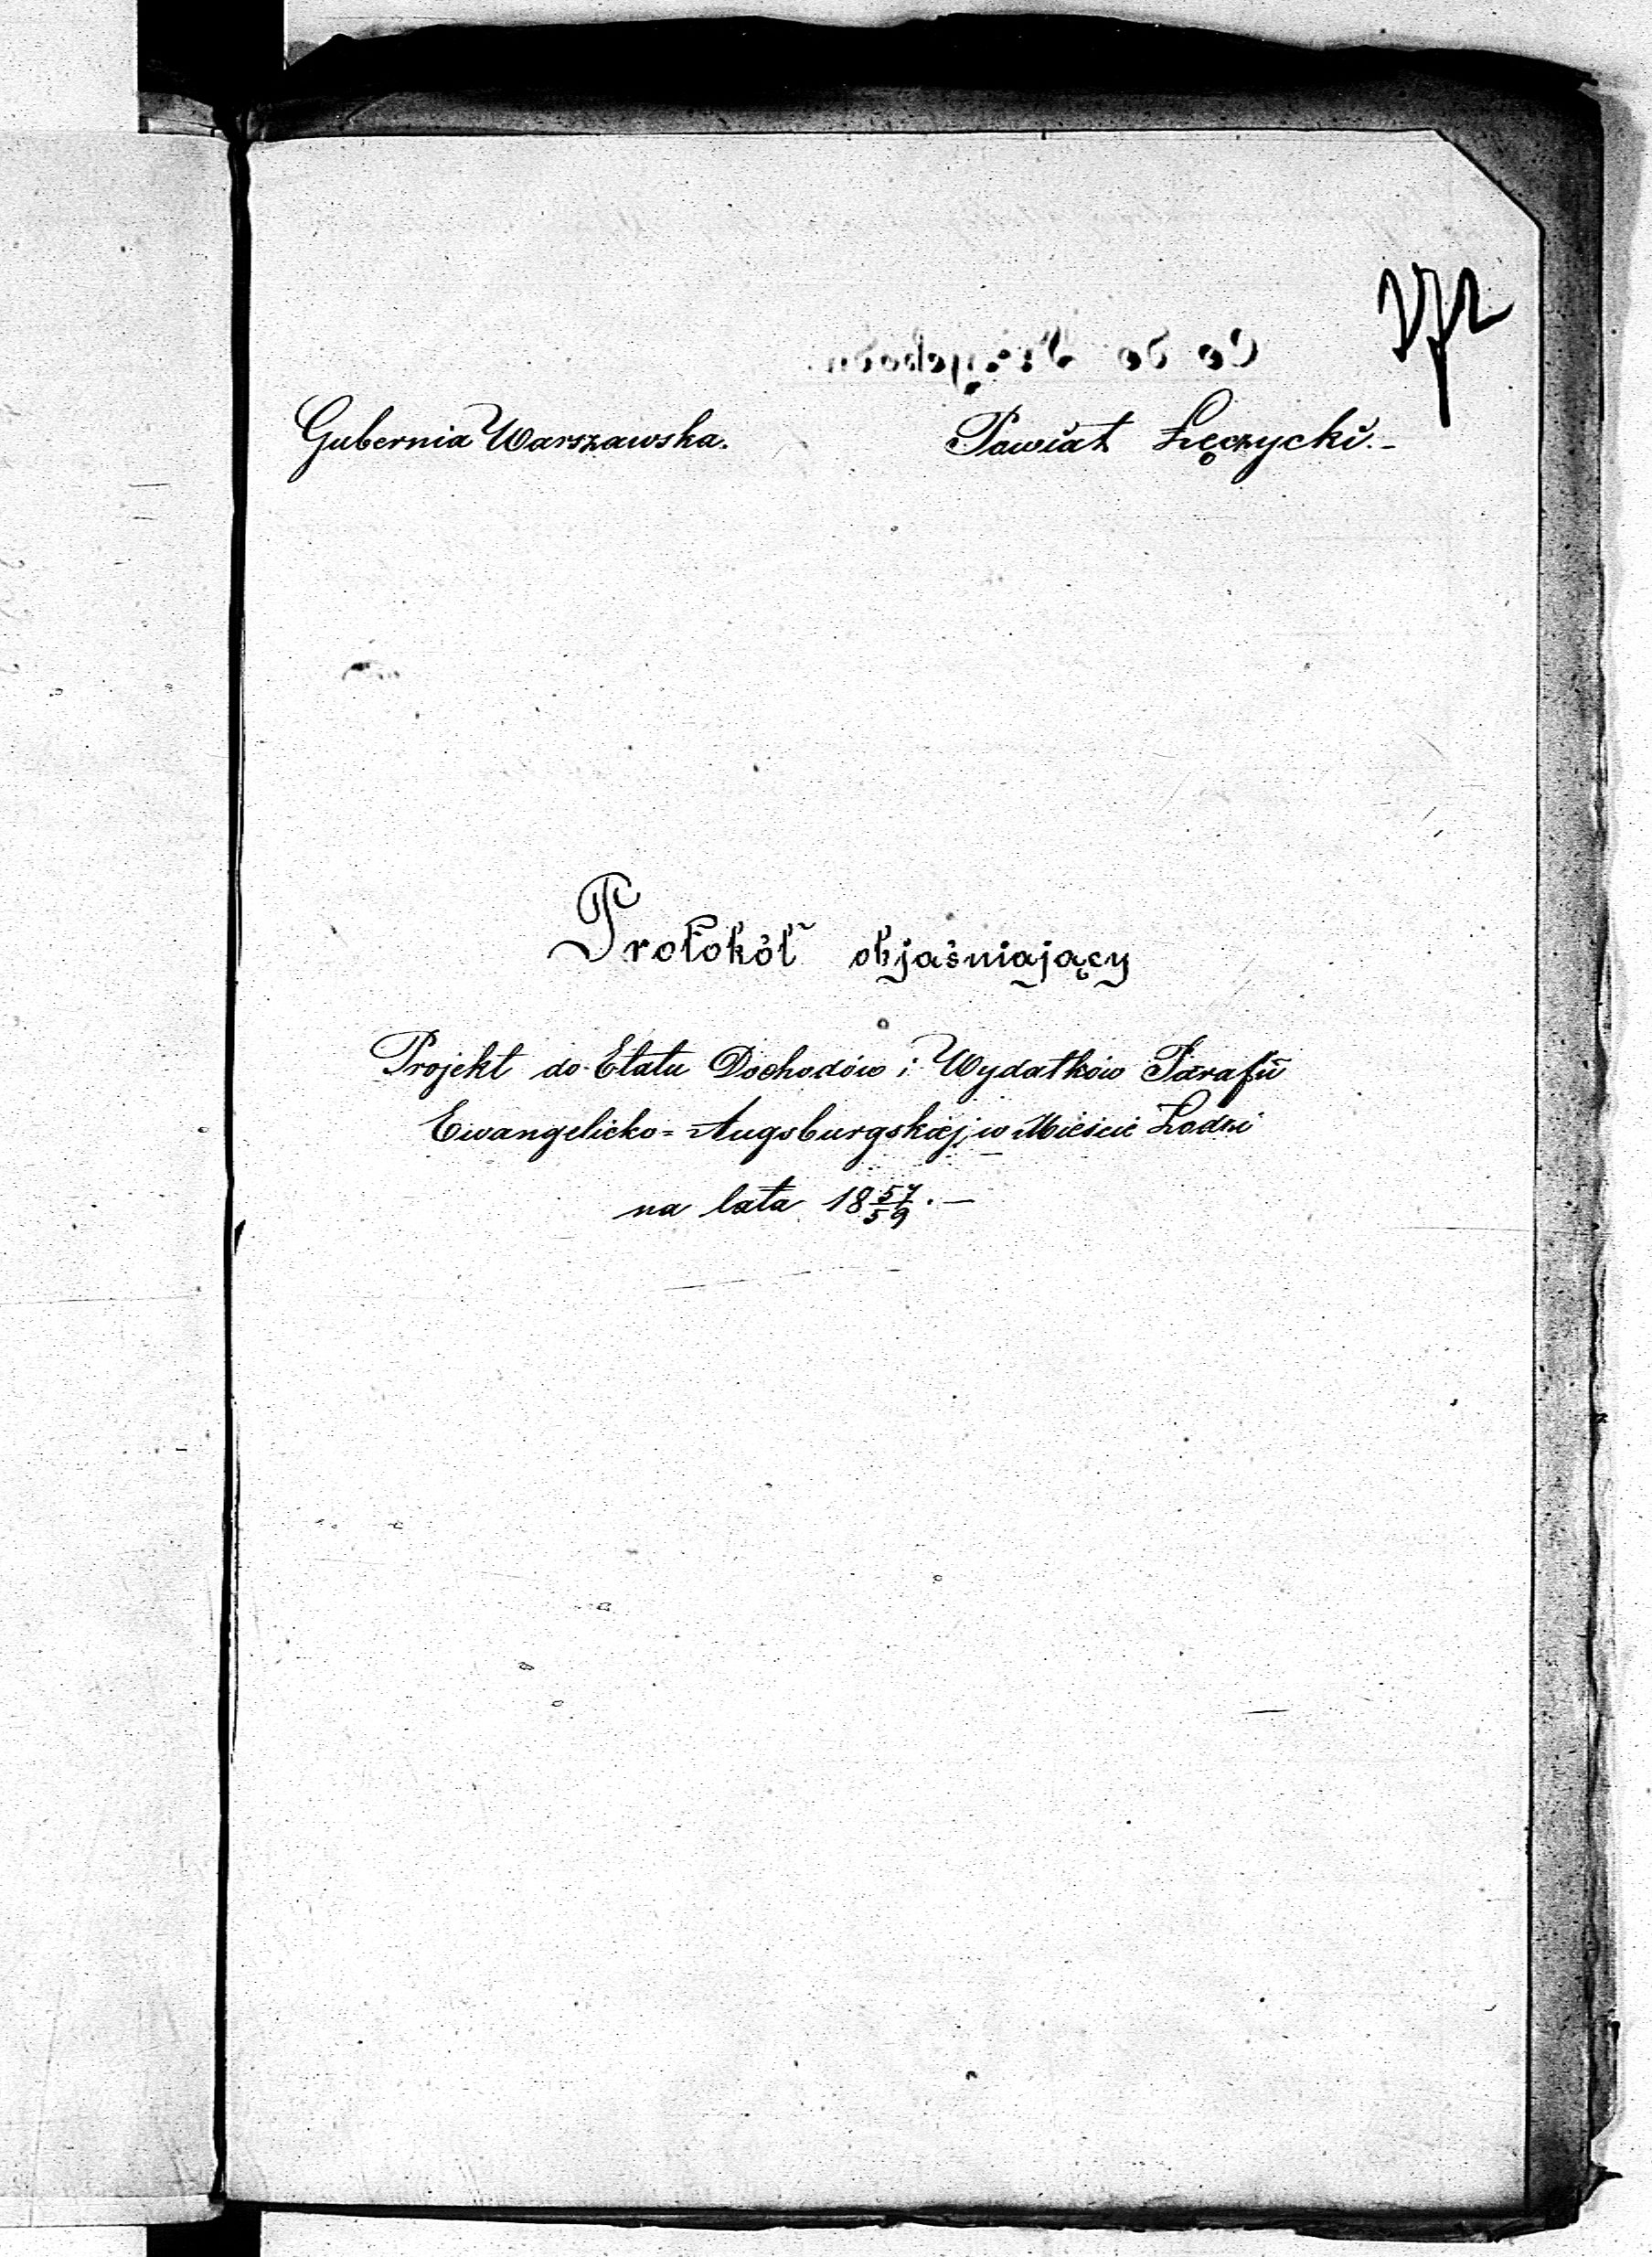 Gubernia Warszawska. Powiat Łęczycki.-
Protokół objaśniający
Projekt do Etatu Dochodów i Wydatków Parafii
Ewangelicko=Augsburgskiej, w Mieście Łodzi
na lata 18 57/59.—